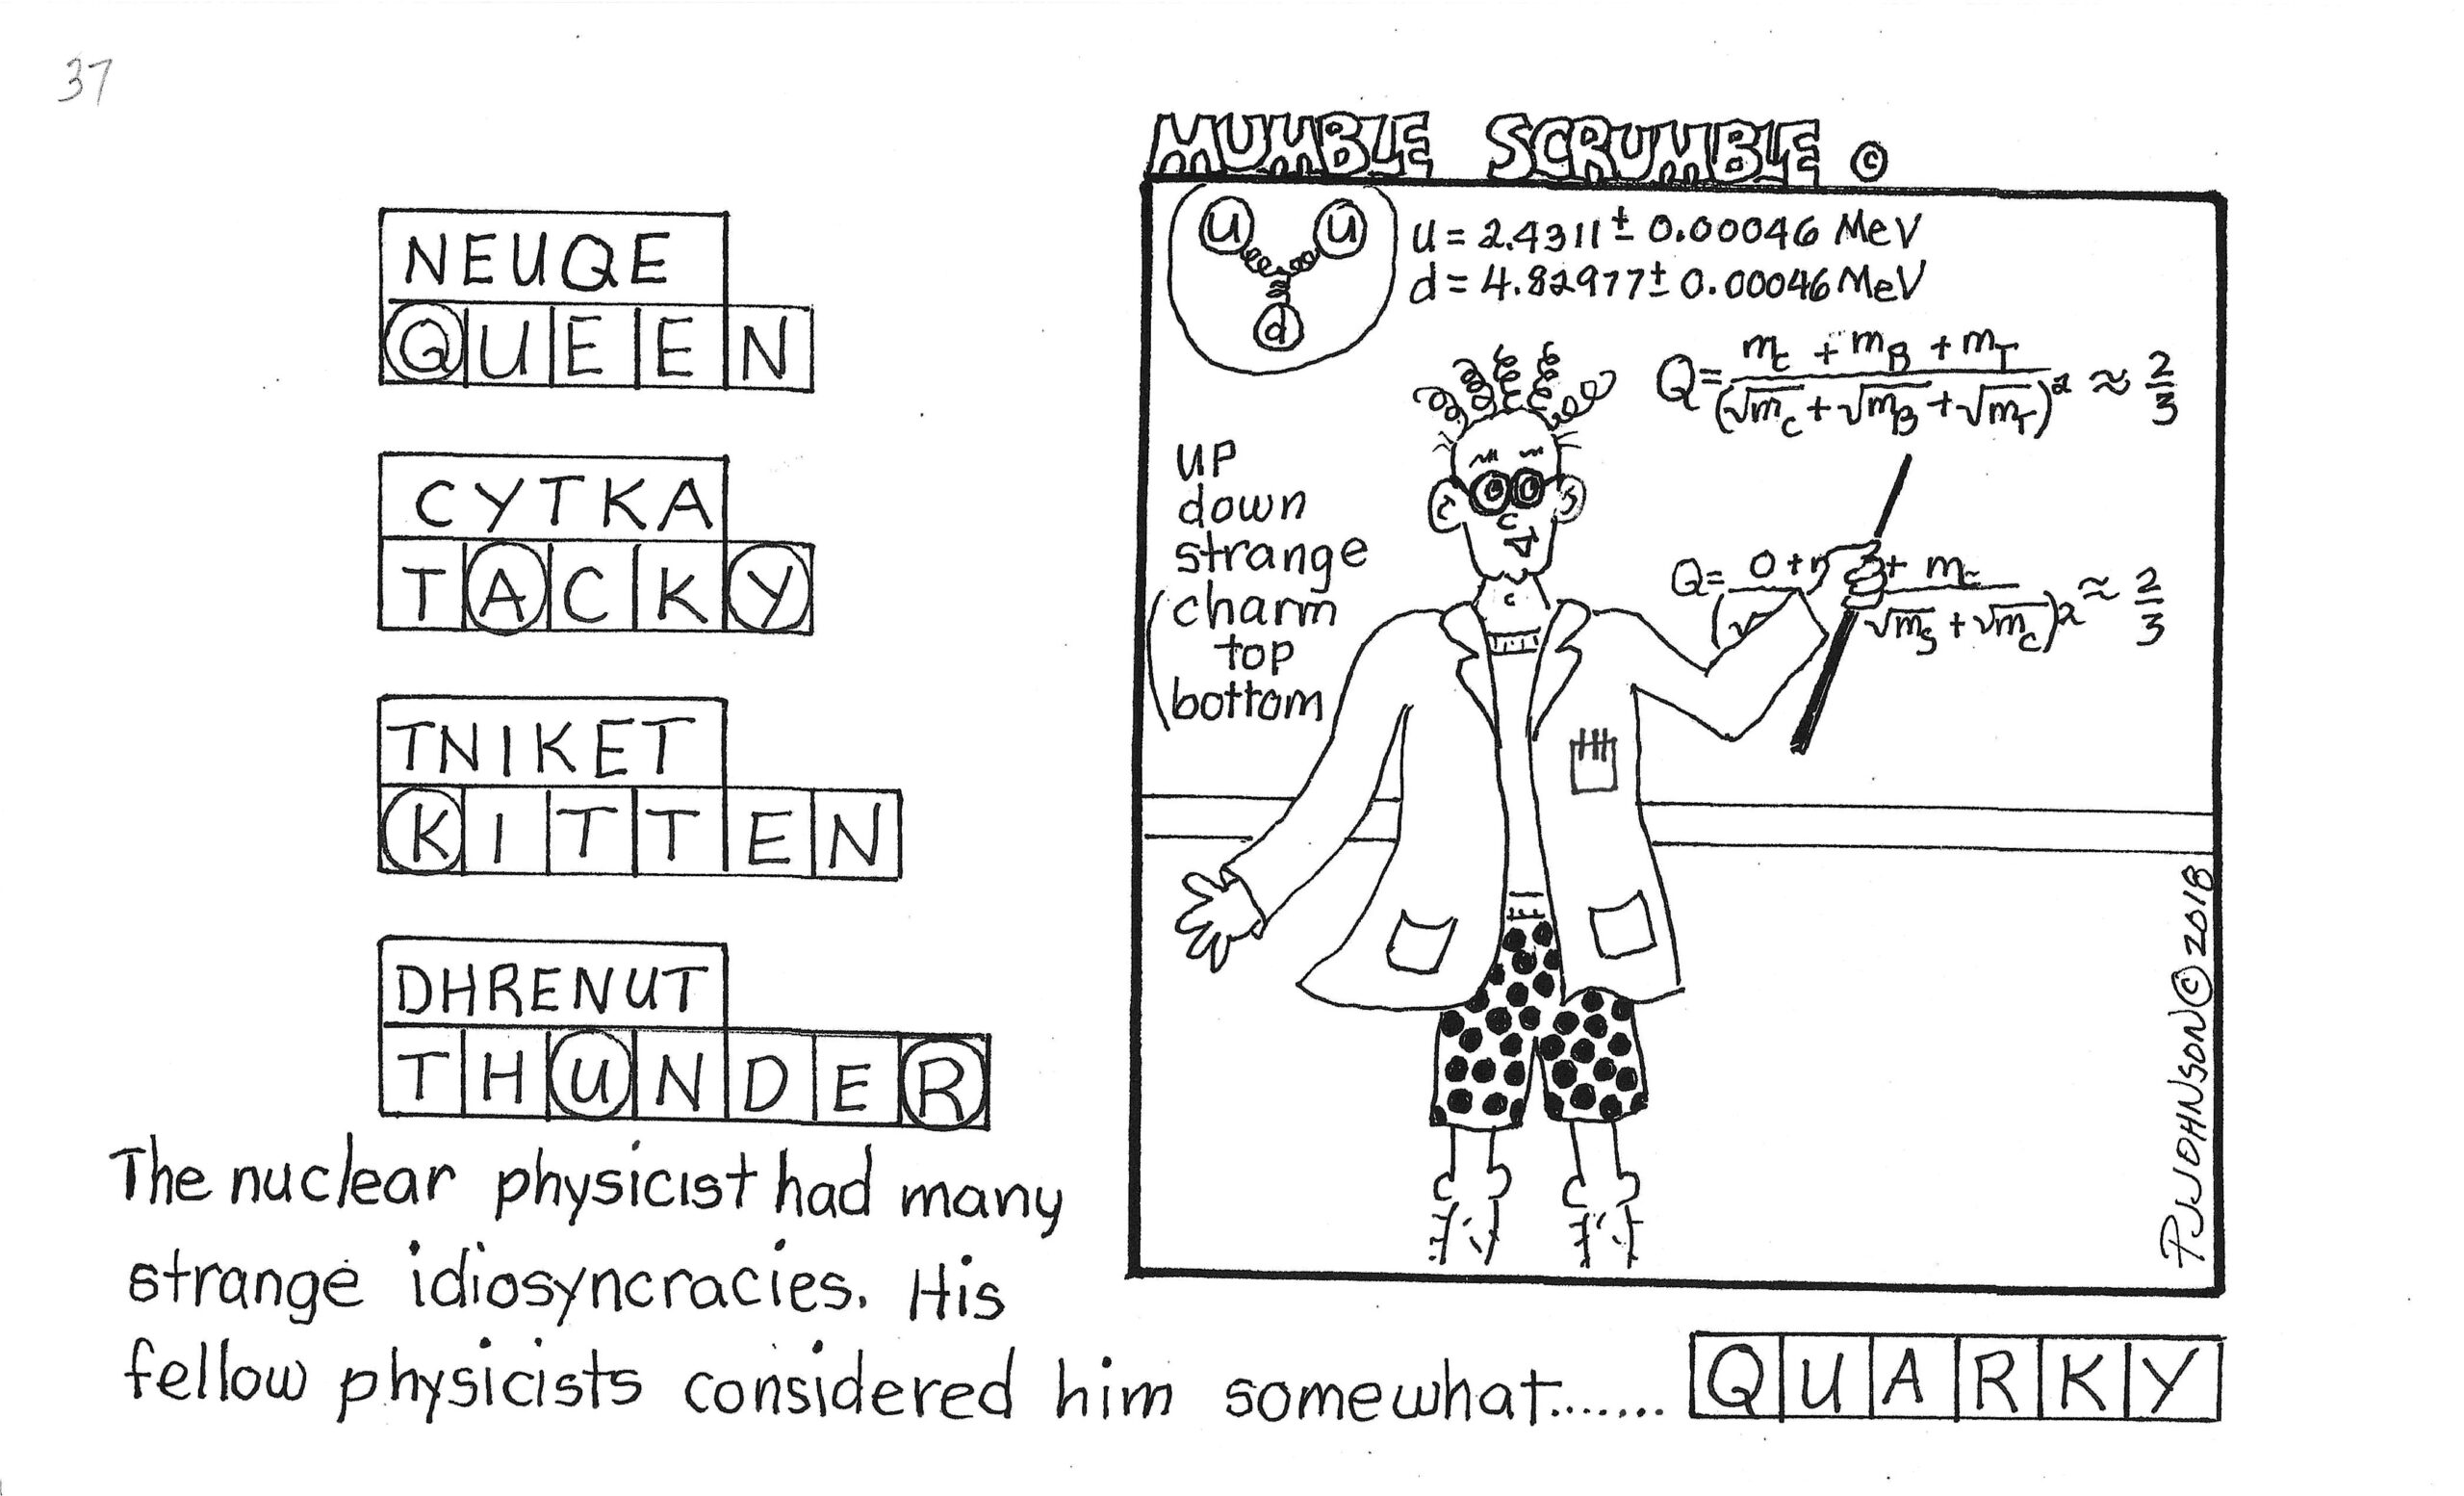 37
MUMBLE SCRUMBLE ©
NEUQE
QUEEN
CYTKA
TACKY
TNIKET
KITTEN
DHRENUT
THUNDER
u u
d
u = 2.4311 ± 0.00046 MeV
d = 4.82977 ± 0.00046 MeV
Q = (m_C + m_B + m_T) / (√m_C + √m_B + √m_T)² ≈ 2/3
up
down
strange
charm
top
bottom
Q = 0 + + m_C / (√ √m_S + √m_C)² ≈ 2/3
PJJOHNSON © 2018
The nuclear physicist had many
strange idiosyncracies. His
fellow physicists considered him somewhat....... QUARKY